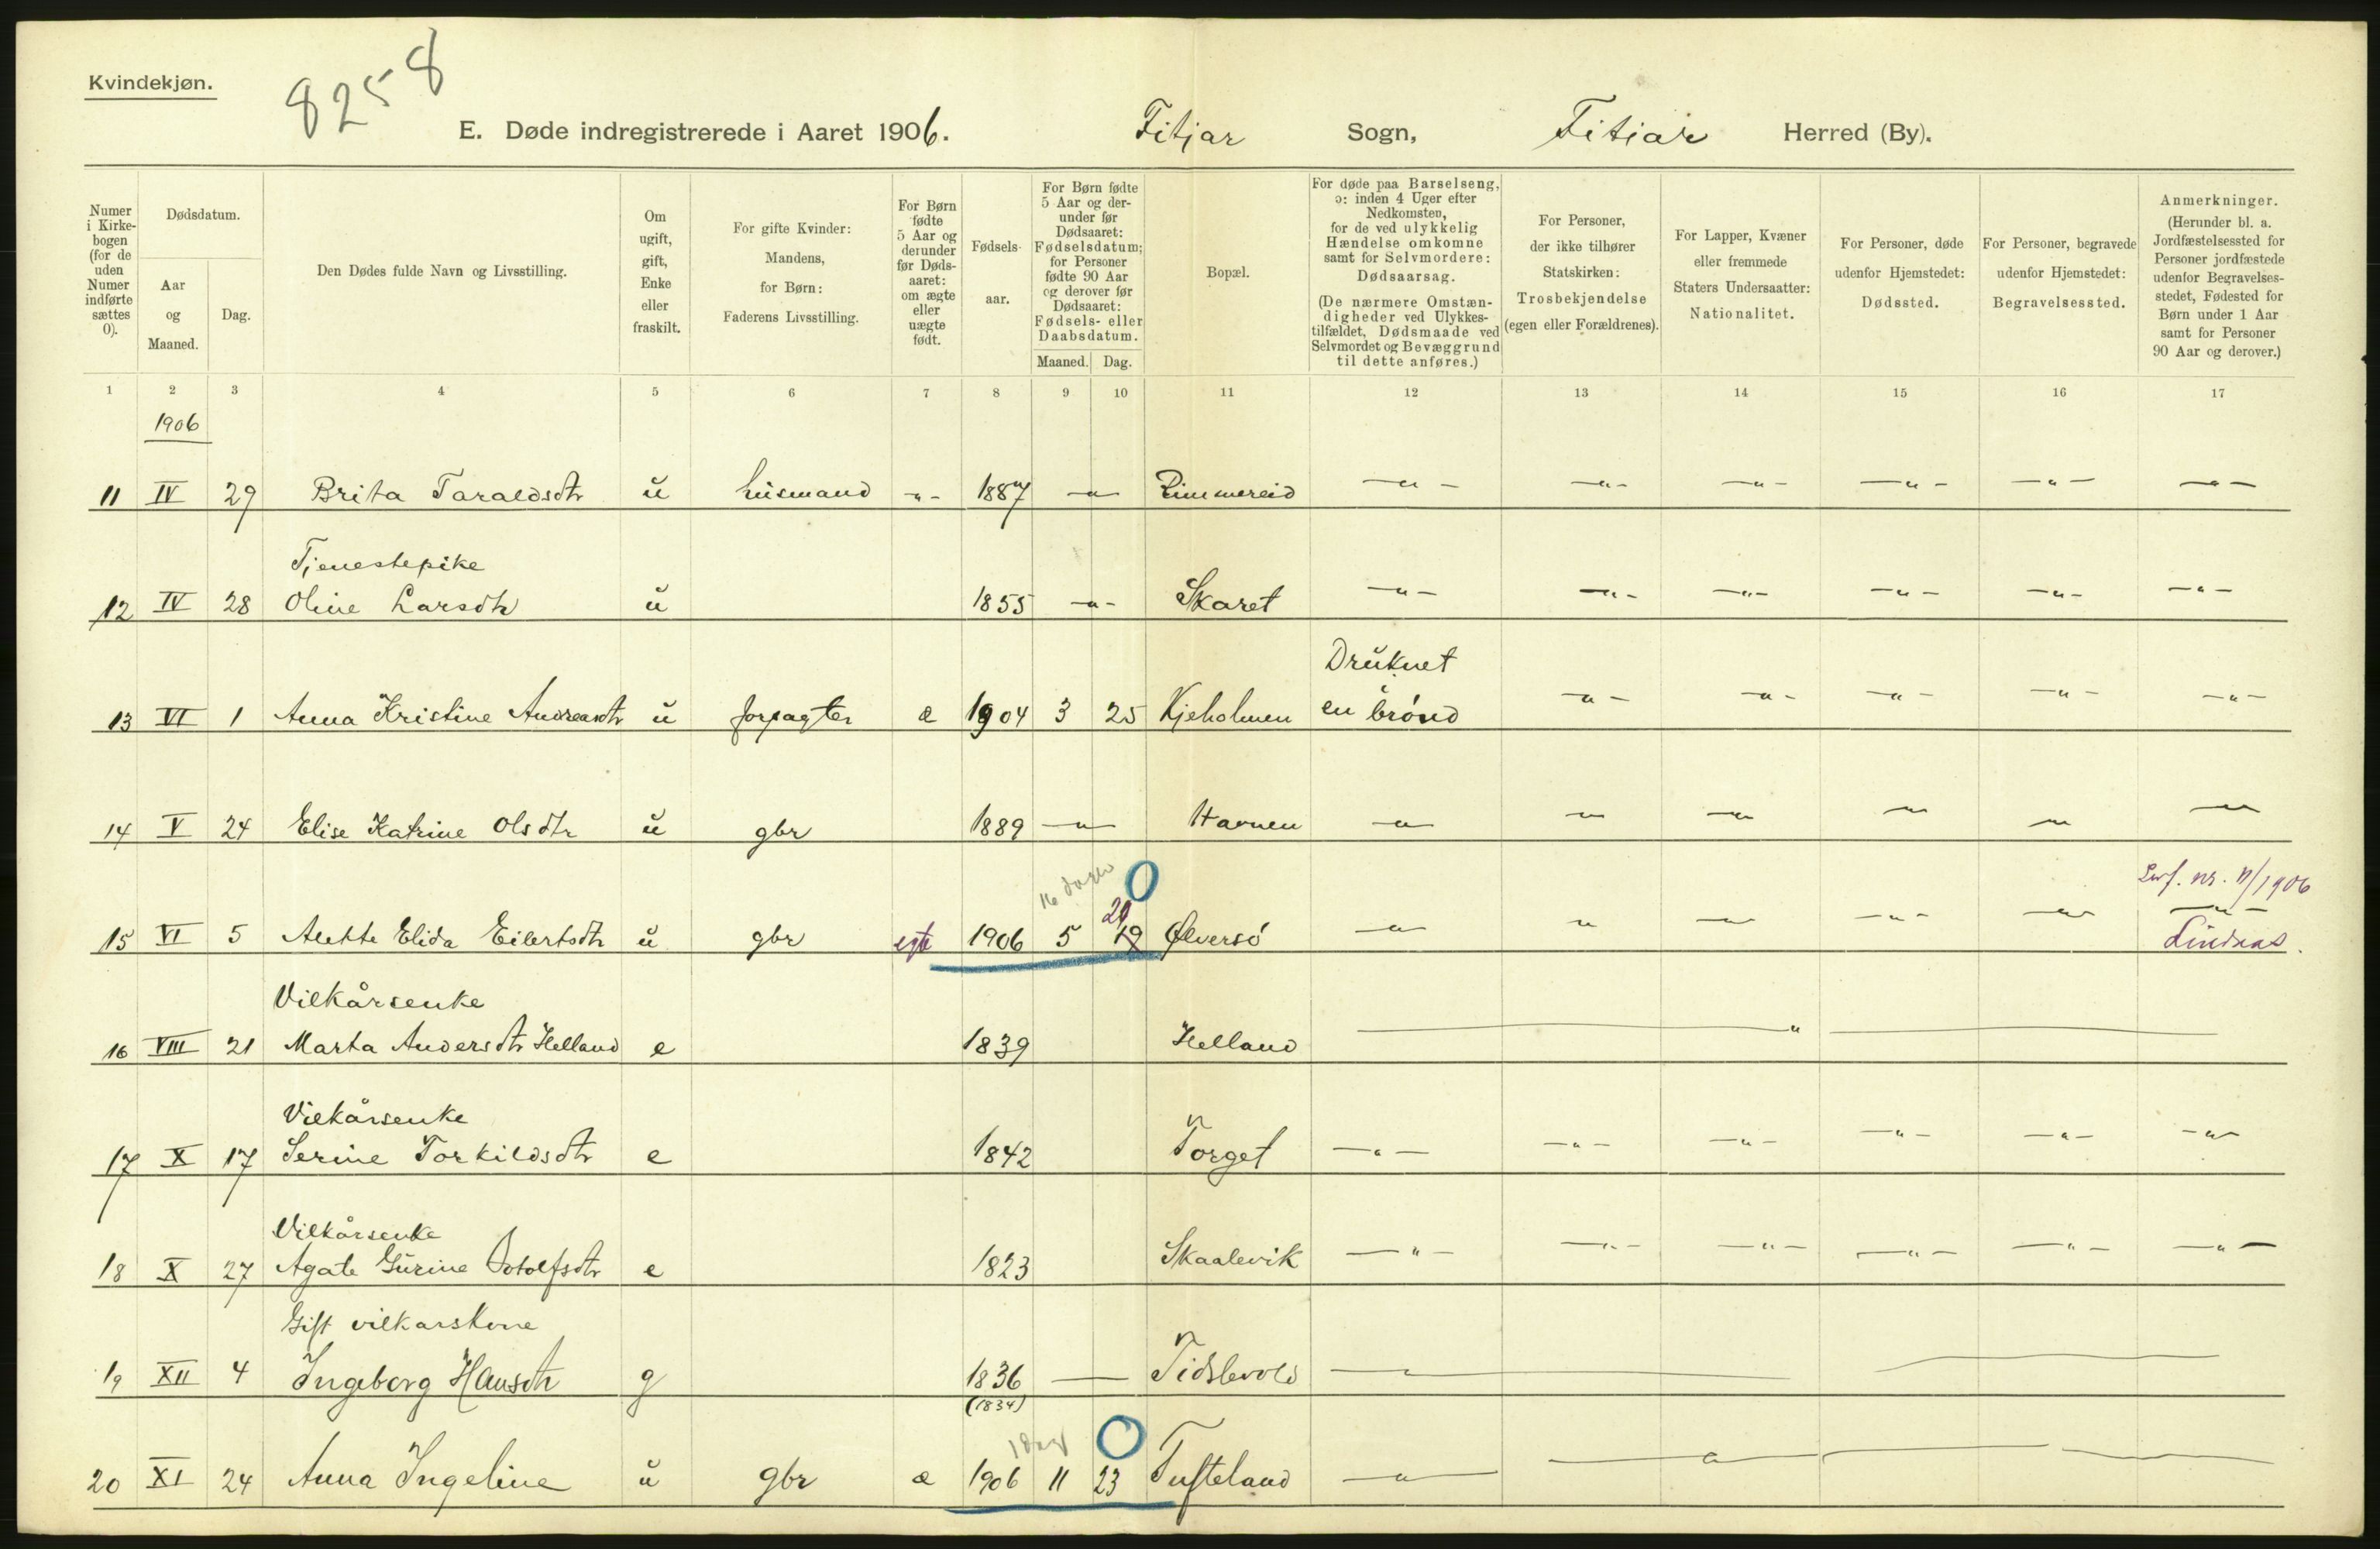 Kvindekjøn.
8258
E. Døde indregistrerede i Aaret 1906. Fitjar Sogn, Fitjar Herred (By).
Numer i Kirke-bogen (for de uden Numer indførte sættes 0).
Dødsdatum.
Aar og Maaned.
Dag.
Den Dødes fulde Navn og Livsstilling.
Om ugift, gift, Enke eller fraskilt.
For gifte Kvinder: Mandens, for Børn: Faderens Livsstilling.
For Børn fødte 5 Aar og derunder før Døds-aaret: om ægte eller uægte født.
Fødsels-aar.
For Børn fødte 5 Aar og der-under før Dødsaaret: Fødselsdatum; for Personer fødte 90 Aar og derover før Dødsaaret: Fødsels- eller Daabsdatum.
Maaned. Dag.
Bopæl.
For døde paa Barselseng, ɔ: inden 4 Uger efter Nedkomsten, for de ved ulykkelig Hændelse omkomne samt for Selvmordere: Dødsaarsag.
(De nærmere Omstæn-digheder ved Ulykkes-tilfældet, Dødsmaade ved Selvmordet og Bevæggrund til dette anføres.)
For Personer, der ikke tilhører Statskirken: Trosbekjendelse (egen eller Forældrenes).
For Lapper, Kvæner eller fremmede Staters Undersaatter: Nationalitet.
For Personer, døde udenfor Hjemstedet: Dødssted.
For Personer, begravede udenfor Hjemstedet: Begravelsessted.
Anmerkninger. (Herunder bl. a. Jordfæstelsessted for Personer jordfæstede udenfor Begravelses-stedet, Fødested for Børn under 1 Aar samt for Personer 90 Aar og derover.)
1 2 3 4 5 6 7 8 9 10 11 12 13 14 15 16 17
1906
11 IV 29 Brita Taraldsdtr u husmand -"- 1887 -"- Rimmereid -"- -"- -"- -"- -"- -"-
Tjenestepike
12 IV 28 Oline Larsdtr u 1855 -"- Skaret -"- -"- -"- -"- -"- -"-
Druknet
13 VI 1 Anna Kristine Andreasdtr u forpagter æ 1904 3 25 Kjeholmen en brønd -"- -"- -"- -"- -"-
14 V 24 Elise Katrine Olsdtr u gbr 1889 -"- Havnen -"- -"- -"- -"- -"- -"-
16 dager 0 nr. 11/1906
20
15 VI 5 Alette Elida Eilertsdtr u gbr egte 1906 5 19 Øverső -"- -"- -"- -"- -"- -"-
Lindaas.
Vilkårsenke
16 VIII 21 Marta Andersdtr Helland e 1839 Helland "
Vilkårsenke
17 X 17 Serine Torkildsdtr e 1842 Torget -"- -"- -"- -"- -"- -"-
Vilkårsenke
18 X 27 Agate Gurine e 1823 Skaalevik -"- -"- -"- -"- -"- -"-
Gift vilkarskone
19 XII 4 Ingeborg Hansdtr g 1836 — Tidslevold
(1834)
1 dag 0
20 XI 24 Anna Ingeline u gbr æ 1906 11 23 Tufteland -"- "